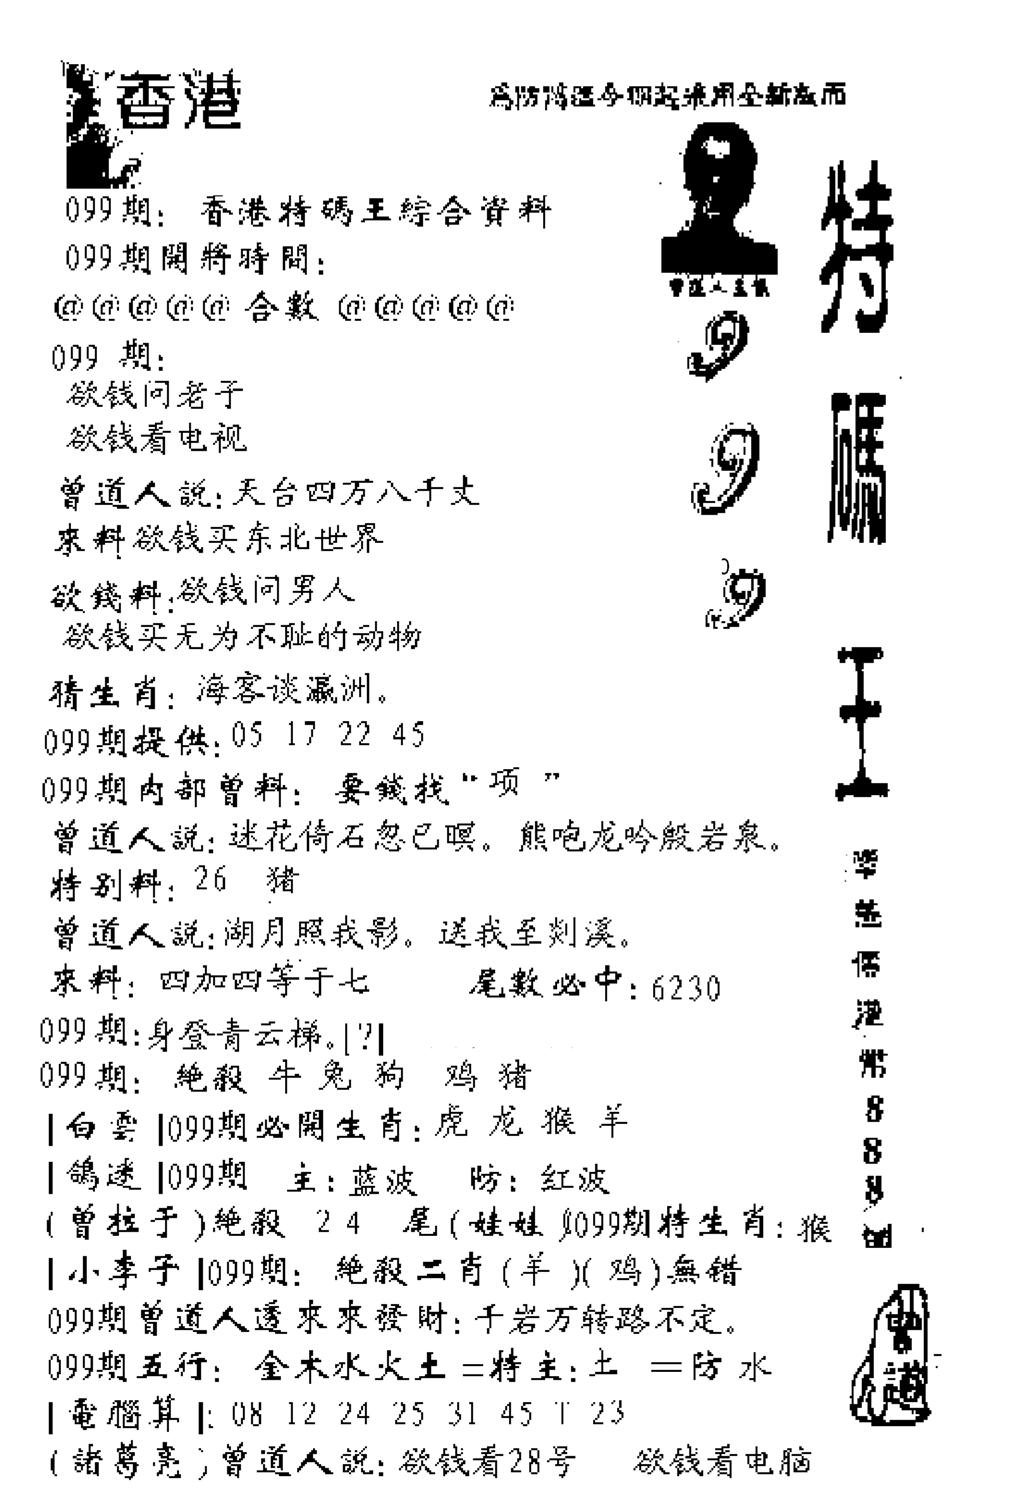 香港
099期：香港特碼王綜合資料
099期開將時間：
@@@@@合數@@@@@
099 期：
欲钱问老子
欲钱看电视
曾道人説：天台四万八千丈
來料欲钱买东北世界
欲錢料：欲钱问男人
欲钱买无为不耻的动物
猜生肖：海客谈瀛洲。
099期提供：05 17 22 45
099期內部曾料：要錢找“项”
曾道人説：迷花倚石忽已暝。熊咆龙吟殷岩泉。
特别料：26 猪
曾道人説：湖月照我影。送我至剡溪。
來料：四加四等于七 尾數必中：6230
099期：身登青云梯。[?]
099期：絶殺 牛 兔 狗 鸡 猪
|白雲|099期必開生肖：虎 龙 猴 羊
|鴿迷|099期 主：蓝波 防：红波
(曾拉于)絶殺 24 尾(娃娃)099期特生肖：猴
|小李子|099期：絶殺二肖(羊)(鸡)無错
099期曾道人透來來發財：千岩万转路不定。
099期五行：金木水火土=特主：土 =防 水
|電腦算|：08 12 24 25 31 45 T 23
(諸葛亮)曾道人説：欲钱看28号 欲钱看电脑
為防今期起采用全新版面
999
特碼王
港幣888
曾道